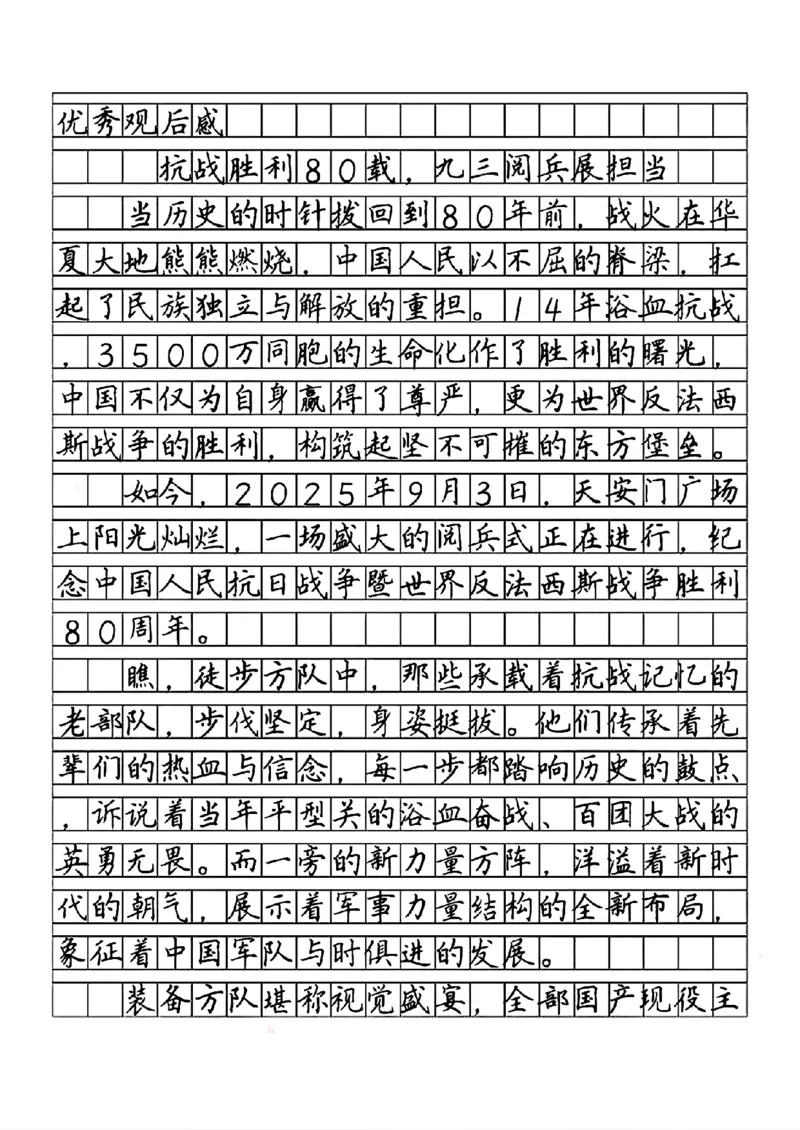 优秀观后感
抗战胜利80载，九三阅兵展担当
当历史的时针拨回到80年前，战火在华
夏大地熊熊燃烧，中国人民以不屈的脊梁，扛
起了民族独立与解放的重担。14年浴血抗战
，3500万同胞的生命化作了胜利的曙光，
中国不仅为自身赢得了尊严，更为世界反法西
斯战争的胜利，构筑起坚不可摧的东方堡垒。
如今，2025年9月3日，天安门广场
上阳光灿烂，一场盛大的阅兵式正在进行，纪
念中国人民抗日战争暨世界反法西斯战争胜利
80周年。
瞧，徒步方队中，那些承载着抗战记忆的
老部队，步伐坚定，身姿挺拔。他们传承着先
辈们的热血与信念，每一步都踏响历史的鼓点
，诉说着当年平型关的浴血奋战、百团大战的
英勇无畏。而一旁的新力量方阵，洋溢着新时
代的朝气，展示着军事力量结构的全新布局，
象征着中国军队与时俱进的发展。
装备方队堪称视觉盛宴，全部国产现役主